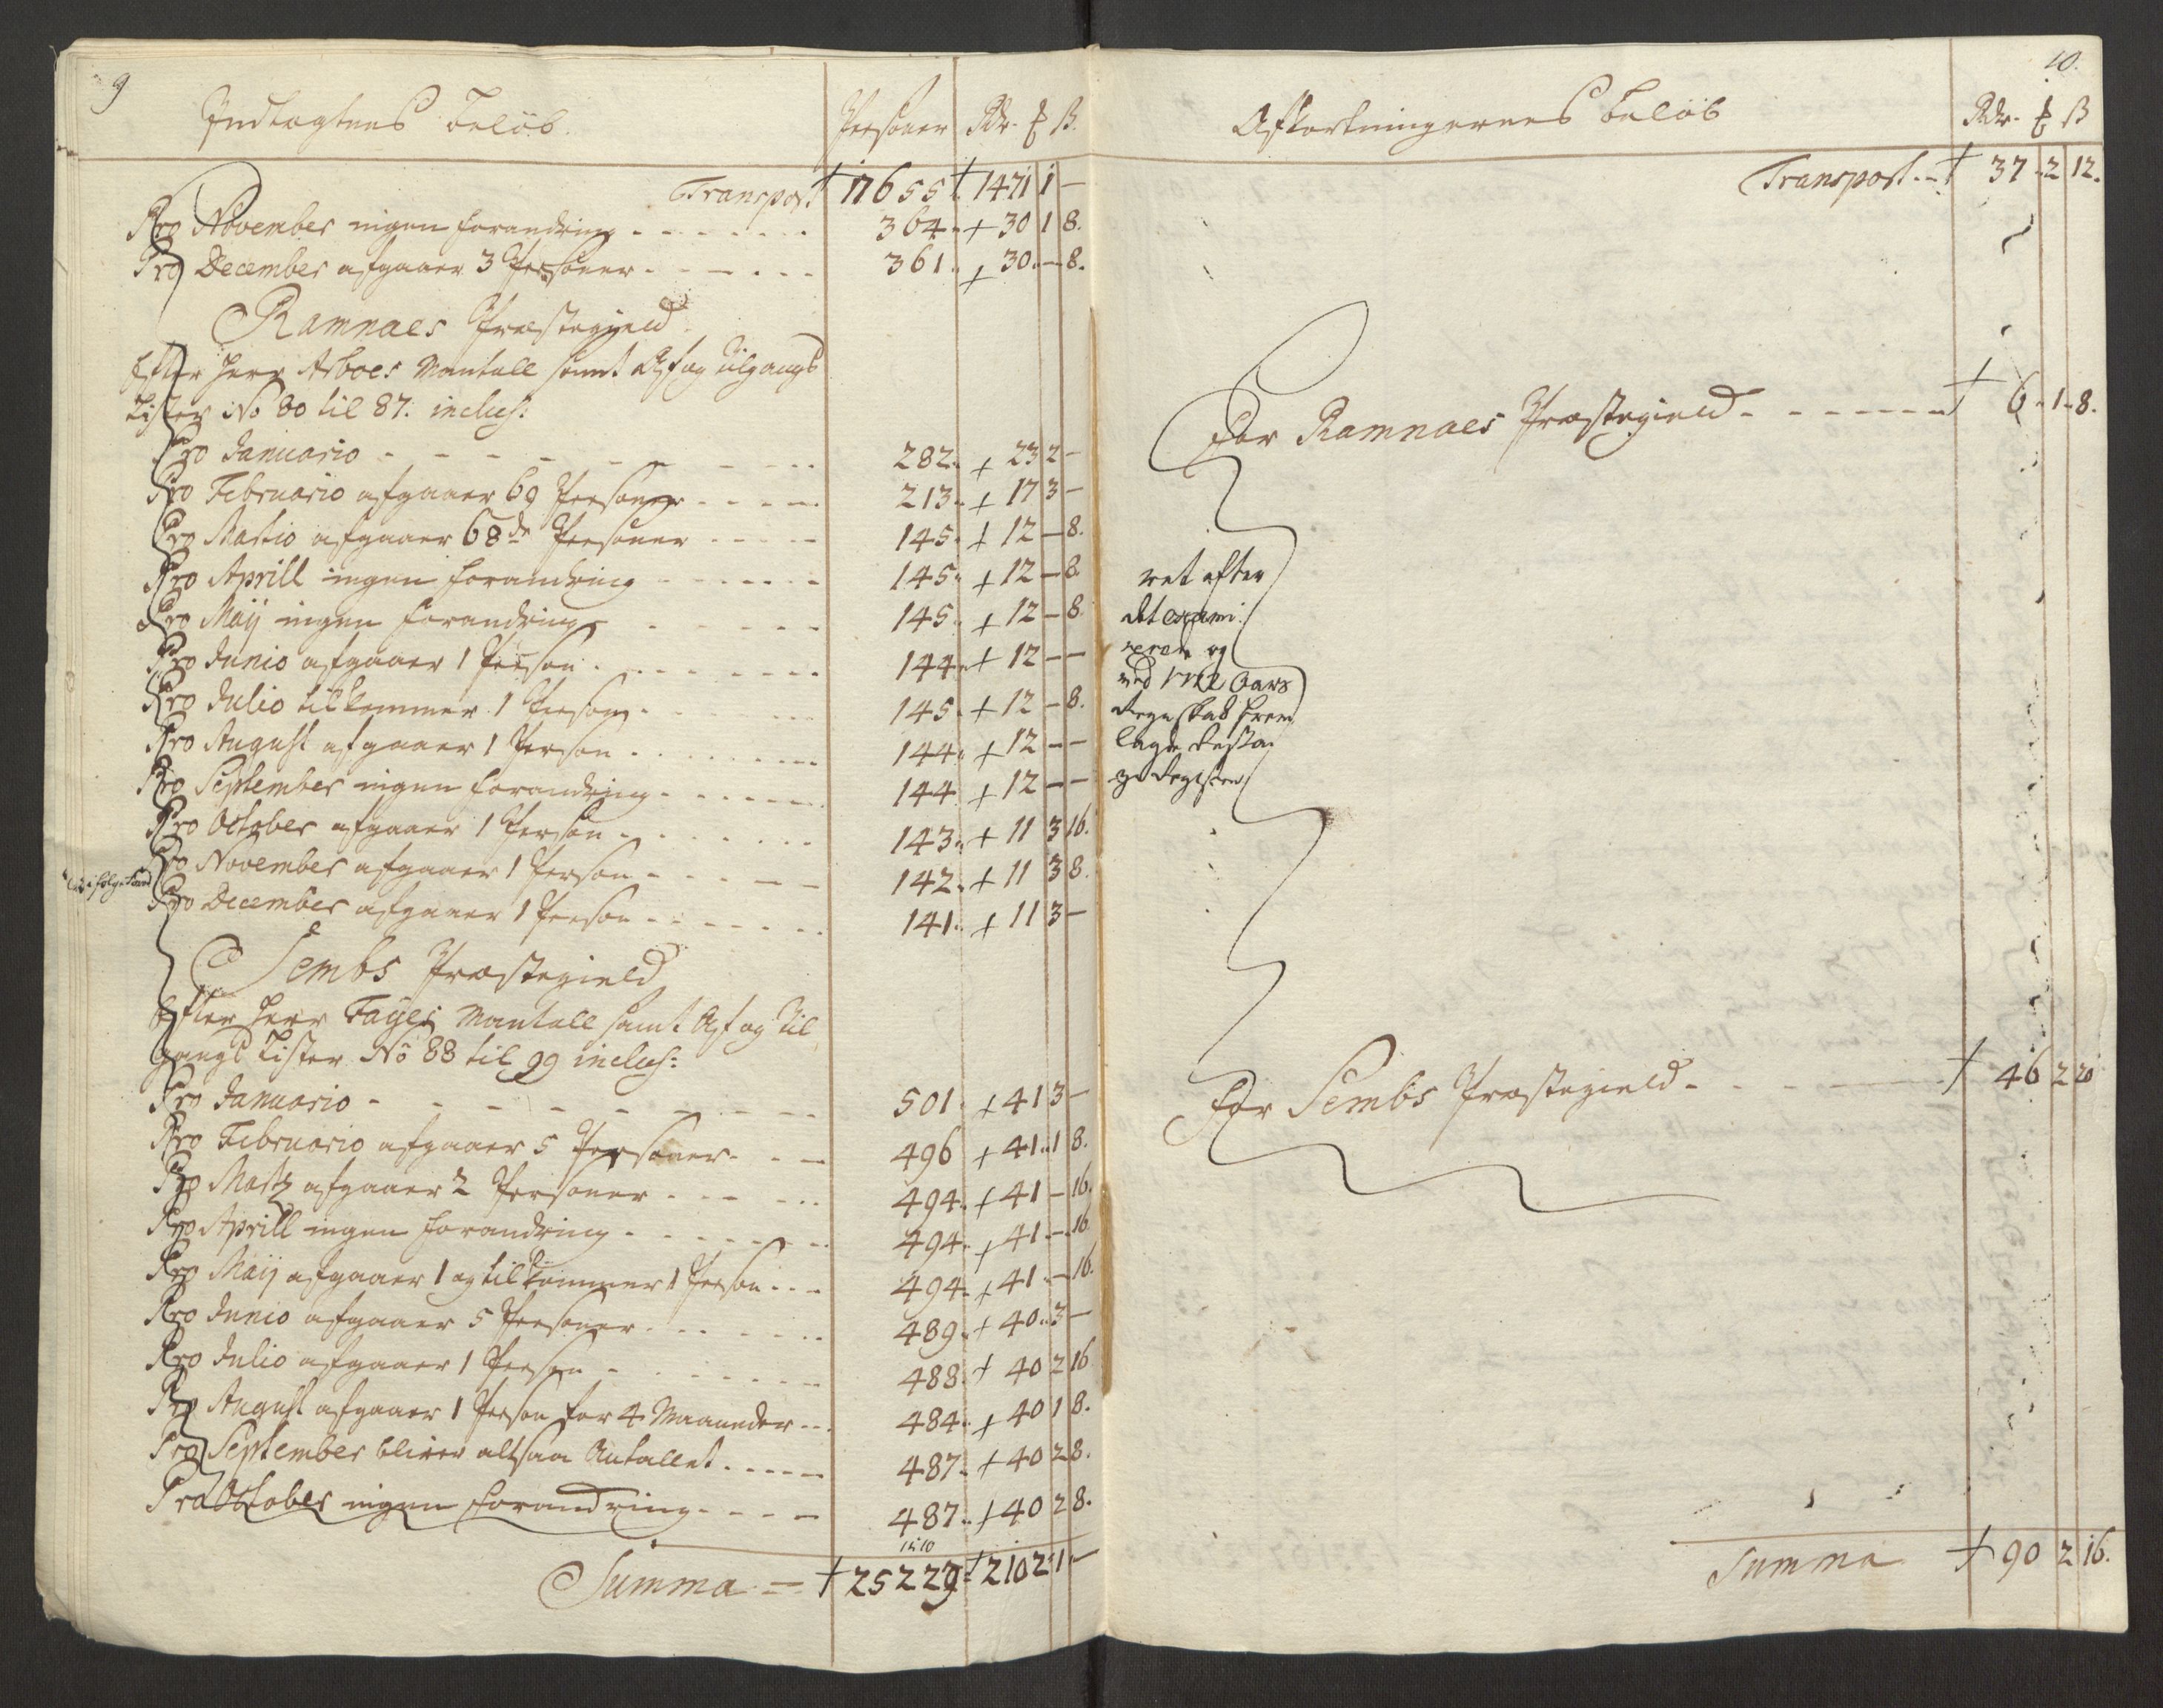 9
Indtægtens Beløb. Personer Rdr. ₰ ß.
Transport 17655 1471 1 —
Pro November ingen forandring 364 30 1 8.
Pro December afgaaer 3 Personer 361 30 — 8.
Ramnaes Præstegield
Efter Herr Asboes Mantall samt Af og Tilgangs
Lister No 80 til 87. inclus:
Pro Januario 282 23 2 —
Pro Februario afgaaer 69 Personer 213 17 3 —
Pro Martio afgaaer 68de Personer 145 12 — 8.
Pro Aprill ingen forandring 145 12 — 8
Pro Maij ingen forandring 145 12 — 8
Pro Junio afgaaer 1 Person 144 12 — —
Pro Julio tilkommer 1 Person 145 12 — 8.
Pro August afgaaer 1 Person 144 12 — —
Pro September ingen forandring 144 12 — —
Pro October afgaaer 1 Person 143 11 3 16.
Pro November afgaaer 1 Person 142 11 3 8.
Pro December afgaaer 1 Person 141 11 3 —
Sembs Præstegield
Efter Herr Fayes Mantall samt Af og Til
gangs Lister No 88 til 99 inclus:
Pro Januario 501 41 3 —
Pro Februario afgaaer 5 Personer 496 41 1 8.
Pro Marty afgaaer 2 Personer 494 41 — 16.
Pro Aprill ingen forandring 494 41 — 16
Pro Maij afgaaer 1 og tilkommer 1 Person 494 41 — 16.
Pro Junio afgaaer 5 Personer 489 40 3 —
Pro Julio afgaaer 1 Person 488 40 2 16
Pro August afgaaer 1 Person for 4 Maaneder 484 40 1 8.
Pro September bliver altsaa Antallet 487 40 2 8.
Pro October ingen forandring 487 40 2 8.
Summa 25229 2102 1 —
10.
Afkortningernes Beløb Rdr. ₰ ß
Transport 37 2 12.
For Ramnaes Præstegield 6 1 8.
ret efter
det exami:
rerede og
ved 1762 Aars
Regnskab frem
lagde Resta
ge Register
For Sembs Præstegield 46 2 20
Summa 90 2 16.